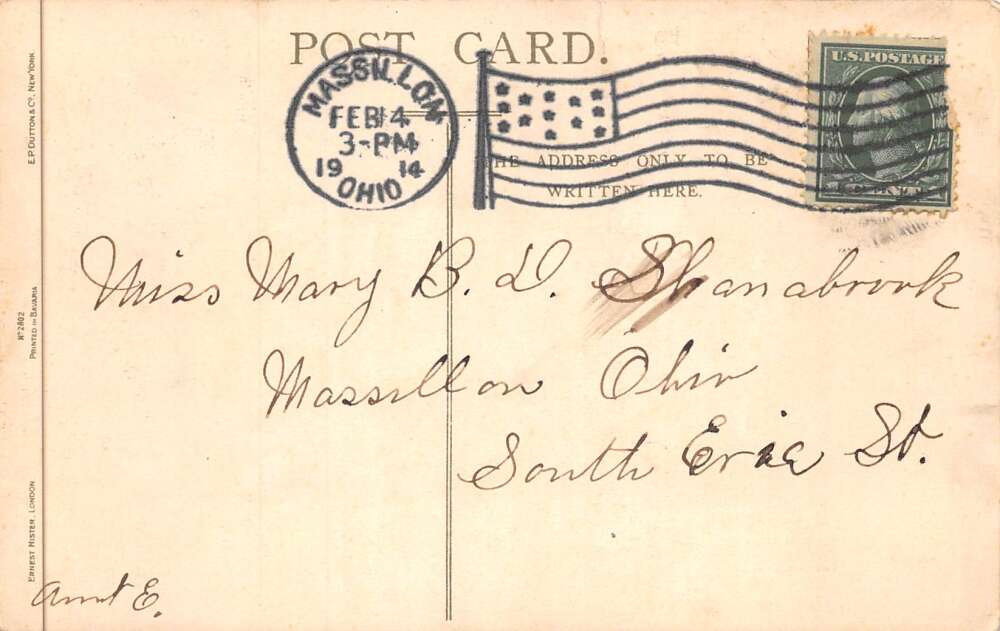 POST CARD.
MASSILLON
FEB 14
3-PM
19 14
OHIO
U.S. POSTAGE
THE ADDRESS ONLY TO BE
WRITTEN HERE.
Miss Mary B. D. Shanabrook
Massillon Ohio
South Erie St.
Aunt E.
E.P. DUTTON & Co. NEW YORK.
No 2802
PRINTED IN BAVARIA
ERNEST NISTER, LONDON